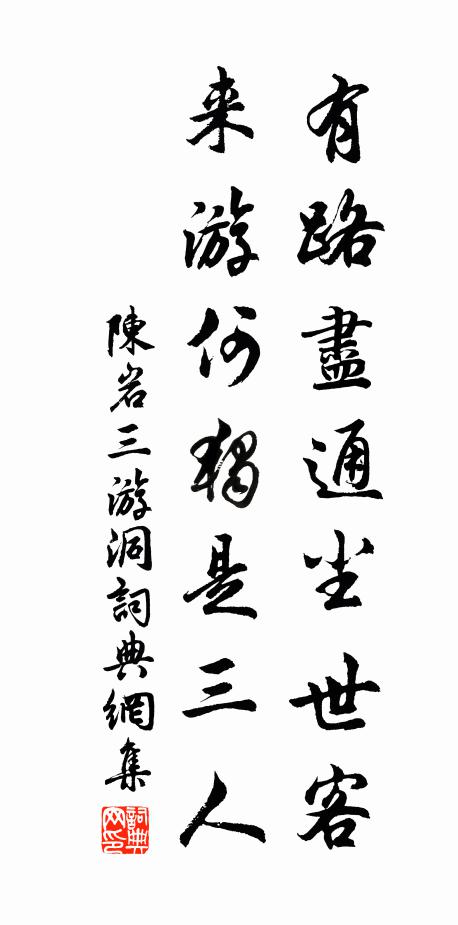 有路盡通尘世客
来游何独是三人
陳岩三游洞詞典網集
詞典网印